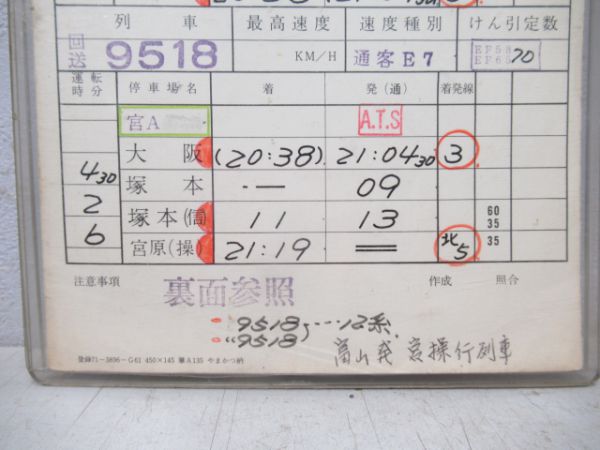 列車 最高速度 速度種別 けん引定数
回送 9518 KM/H 通客E7 EF58 EF65 70
運転時分 停車場名 着 発(通) 着発線
宮A A.T.S
大阪 (20:38) 21:04 30 3
4 30 塚本 — 09
2 塚本(信) 11 13 60 35
6 宮原(操) 21:19 = 北5 35
注意事項 作成 照合
裏面参照
9518 … 12系
〃9518
富山発 宮操行列車
登録71-3896-G61 450×145 華A135 やまかつ納